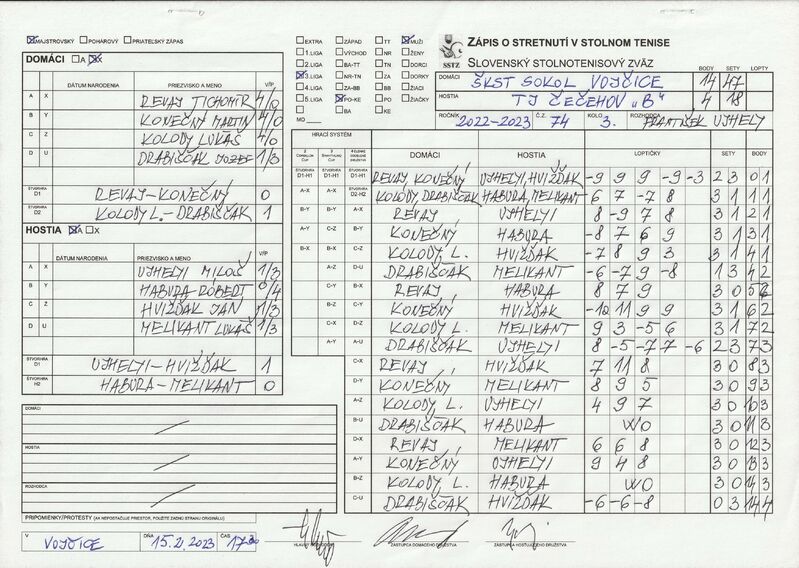 MAJSTROVSKÝ POHÁROVÝ PRIATEĽSKÝ ZÁPAS
EXTRA ZÁPAD TT MUŽI
1.LIGA VÝCHOD NR ŽENY
2.LIGA BA-TT TN DORCI
3.LIGA NR-TN ZA DORKY
4.LIGA ZA-BB BB ŽIACI
5.LIGA PO-KE PO ŽIAČKY
MD BA KE
SSTZ
ZÁPIS O STRETNUTÍ V STOLNOM TENISE
SLOVENSKÝ STOLNOTENISOVÝ ZVÄZ
BODY SETY LOPTY
DOMÁCI ŠKST SOKOL VOJČICE 14 47
HOSTIA TJ ČEČEHOV "B" 4 18
ROČNÍK 2022-2023 Č.Z. 74 KOLO 3. ROZHODCA FRANTIŠEK UJHELY
DOMÁCI A X
DÁTUM NARODENIA PRIEZVISKO A MENO V/P
A X REVAJ TICHOMÍR 4/0
B Y KONEČNÝ MARTIN 4/0
C Z KOLODY LUKÁŠ 4/0
D U DRABIŠČAK JOZEF 1/3
ŠTVORHRA D1 REVAJ-KONEČNÝ 0
ŠTVORHRA D2 KOLODY L.-DRABIŠČAK 1
HOSTIA A X
DÁTUM NARODENIA PRIEZVISKO A MENO V/P
A X UJHELYI MILOŠ 1/3
B Y HABURA RÓBERT 0/4
C Z HVIŽĎAK JÁN 1/3
D U MELIKANT LUKÁŠ 1/3
ŠTVORHRA D1 UJHELYI-HVIŽĎAK 1
ŠTVORHRA H2 HABURA-MELIKANT 0
DOMÁCI
HOSTIA
ROZHODCA
PRIPOMIENKY/PROTESTY (AK NEPOSTAČUJE PRIESTOR, POUŽITE ZADNÚ STRANU ORIGINÁLU)
V VOJČICE DŇA 15.2.2023 ČAS 17
HRACÍ SYSTÉM
DOMÁCI HOSTIA LOPTIČKY SETY BODY
ŠTVORHRA D1-H1 REVAJ, KONEČNÝ UJHELYI, HVIŽĎAK -9 9 9 -9 -3 2 3 0 1
A-X A-X ŠTVORHRA D2-H2 KOLODY, DRABIŠČAK HABURA, MELIKANT 6 7 -7 8 3 1 1 1
B-Y B-Y A-X REVAJ UJHELYI 8 -9 7 8 3 1 2 1
A-Y C-Z B-Y KONEČNÝ HABURA -8 7 6 9 3 1 3 1
B-X B-X C-Z KOLODY L. HVIŽĎAK -7 8 9 3 3 1 4 1
A-Z D-U DRABIŠČAK MELIKANT -6 -7 9 -8 1 3 4 2
C-Y B-X REVAJ HABURA 8 7 9 3 0 5 2
B-Z C-Y KONEČNÝ HVIŽĎAK -10 11 9 9 3 1 6 2
C-X D-Z KOLODY L. MELIKANT 9 3 -5 6 3 1 7 2
A-Y A-U DRABIŠČAK UJHELYI 8 -5 -7 7 -6 2 3 7 3
C-X REVAJ HVIŽĎAK 7 11 8 3 0 8 3
D-Y KONEČNÝ MELIKANT 8 9 5 3 0 9 3
A-Z KOLODY L. UJHELYI 4 9 7 3 0 10 3
B-U DRABIŠČAK HABURA WO 3 0 11 3
D-X REVAJ MELIKANT 6 6 8 3 0 12 3
A-Y KONEČNÝ UJHELYI 9 4 8 3 0 13 3
B-Z KOLODY L. HABURA WO 3 0 14 3
C-U DRABIŠČAK HVIŽĎAK -6 -6 -8 0 3 14 4
HLAVNÝ ROZHODCA ZÁSTUPCA DOMÁCEHO DRUŽSTVA ZÁSTUPCA HOSŤUJÚCEHO DRUŽSTVA